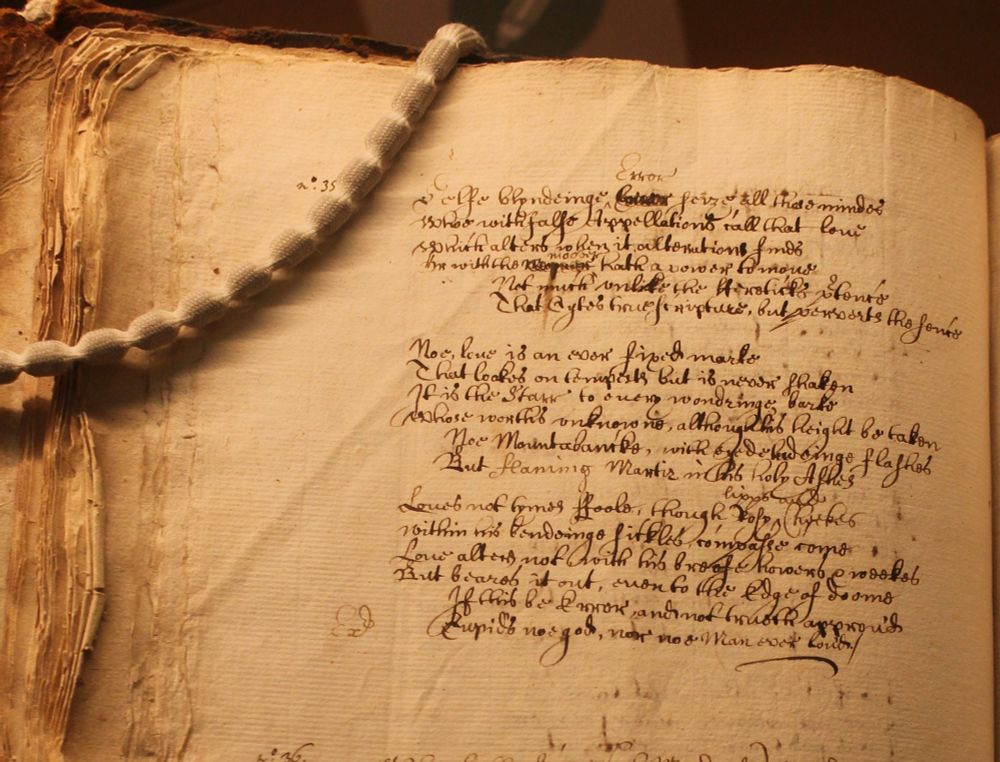 Error
n°. 35
Selfe blyndeinge seize all those mindes
Whoe with false Appellations call that love
Which alters when it alterations finds
mover
Or with the hath a power to move
Not much unlike the Hereticks ptence
That Cytes true scripture, but perverts the sence
Noe, love is an ever fixed marke
That lookes on tempests but is never shaken
It is the Starr to every wondringe barke
Whose worths unknowne, although his height be taken
Noe Mountabancke, with eyedeludeinge flashes
But flaming Martir in his holy Ashes
lipps and
Loves not tymes Foole, though Rosy Cheekes
within his bendeinge sickles compasse come
Love alters not with his breife howers & weekes
But beares it out, even to the Edge of doome
If this be Error, and not trueth approvd
Cupids noe god, nor noe Man ever lovd
n°. 36